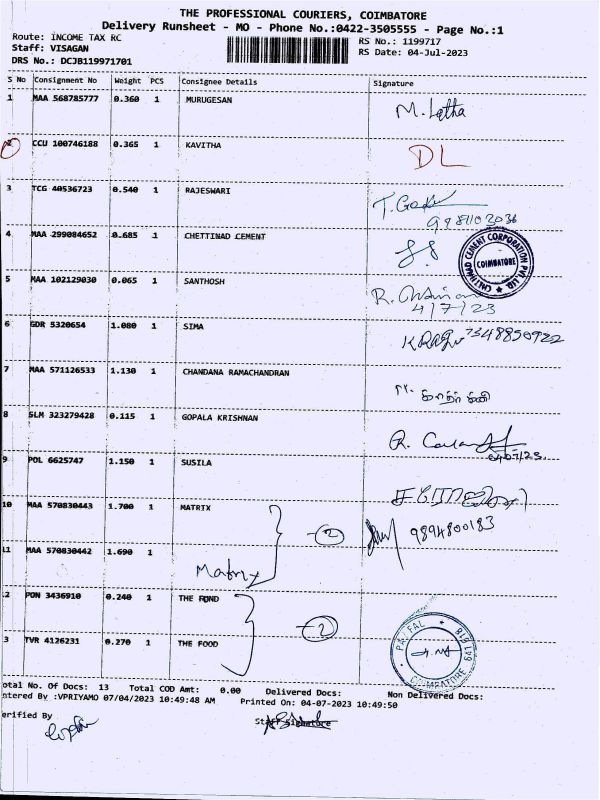 THE PROFESSIONAL COURIERS, COIMBATORE
Delivery Runsheet - MO - Phone No.:0422-3505555 - Page No.:1
Route: INCOME TAX RC
RS No.: 1199717
Staff: VISAGAN
RS Date: 04-Jul-2023
DRS No.: DCJB119971701
S No Consignment No Weight PCS Consignee Details Signature
1 MAA 568785777 0.360 1 MURUGESAN M. Latha
2 CCU 100746188 0.365 1 KAVITHA DL
3 TCG 40536723 0.540 1 RAJESWARI
4 MAA 299084652 0.685 1 CHETTINAD CEMENT
CHETTINAD CEMENT CORPORATION PVT. LTD.
COIMBATORE
5 MAA 102129030 0.065 1 SANTHOSH
4/7/23
6 GDR 5320654 1.080 1 SIMA
7 MAA 571126533 1.130 1 CHANDANA RAMACHANDRAN
8 SLM 323279428 0.115 1 GOPALA KRISHNAN
9 POL 6625747 1.150 1 SUSILA
10 MAA 570830443 1.700 1 MATRIX
2 9894800183
11 MAA 570830442 1.690 1
Matrix
2 PON 3436910 0.240 1 THE FOND
2
3 TVR 4126231 0.270 1 THE FOOD
COIMBATORE
otal No. Of Docs: 13 Total COD Amt: 0.00 Delivered Docs: Non Delivered Docs:
ntered By :VPRIYAMO 07/04/2023 10:49:48 AM Printed On: 04-07-2023 10:49:50
erified By Staff Signature